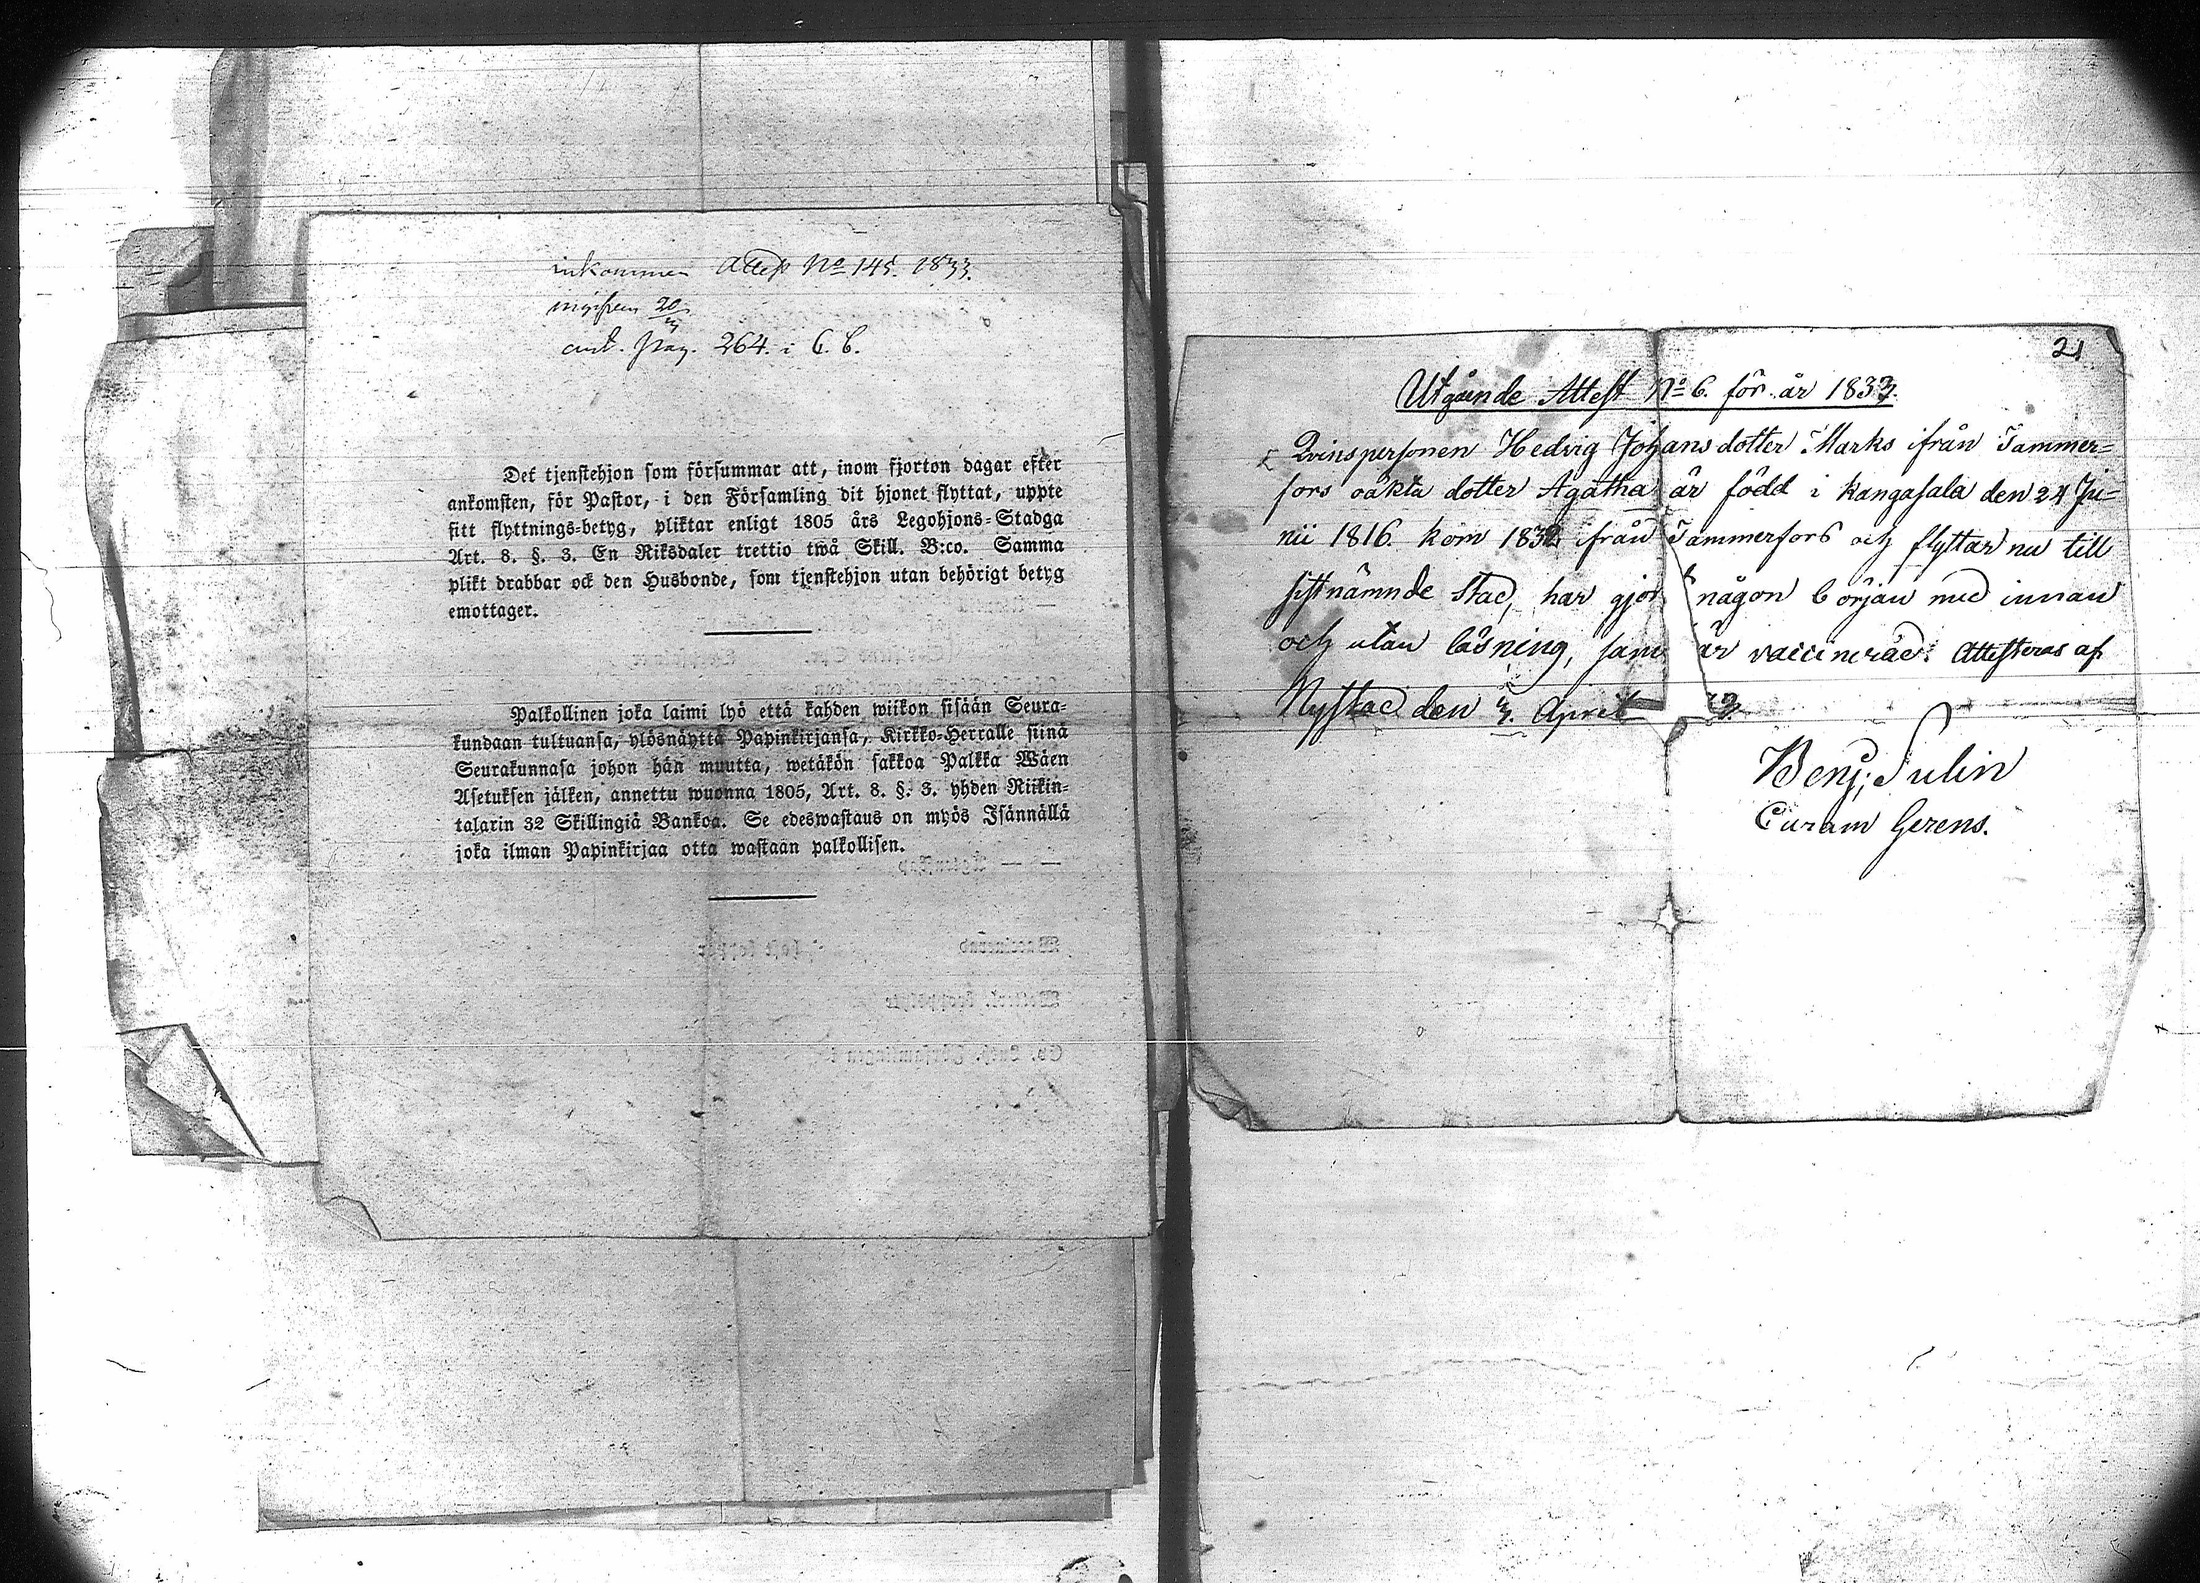 inkommen Attest No 145. 1833.
20
ant. pag. 264. i C. B.
Det tjenstehjon som försummar att, inom fjorton dagar efter
ankomsten, för Pastor, i den Församling dit hjonet flyttat, uppte
sitt flyttnings-betyg, pliktar enligt 1805 års Legohjons-Stadga
Art. 8. §. 3. En Riksdaler trettio twå Skill. B:co. Samma
plikt drabbar ock den Husbonde, som tjenstehjon utan behörigt betyg
emottager.
Palkollinen joka laimi lyö että kahden wiikon sisään Seura-
kundaan tultuansa, ylösnäyttä Papinkirjansa, Kirkko-Herralle siinä
Seurakunnasa johon hän muutta, wetäkön sakkoa Palkka Wäen
Asetuksen jälken, annettu wuonna 1805, Art. 8. §. 3. yhden Riikin-
talarin 32 Skillingiä Bankoa. Se edeswastaus on myös Isännällä
joka ilman Papinkirjaa otta wastaan palkollisen.
21
Utgående Attest No 6. för år 1833.
Qvinspersonen Hedvig Johansdotter Marks ifrån Tammer=
fors oäkta dotter Agatha är född i Kangasala den 24 Ju=
nii 1816. kom 1832 ifrån Tammerfors och flyttar nu till
sistnämnde Stad, har gjor någon början med innan
och utan läsning, samt är vaccinerad. Attesteras af
Nystad den 3. April
Benj: Sulin
Curam Gerens.